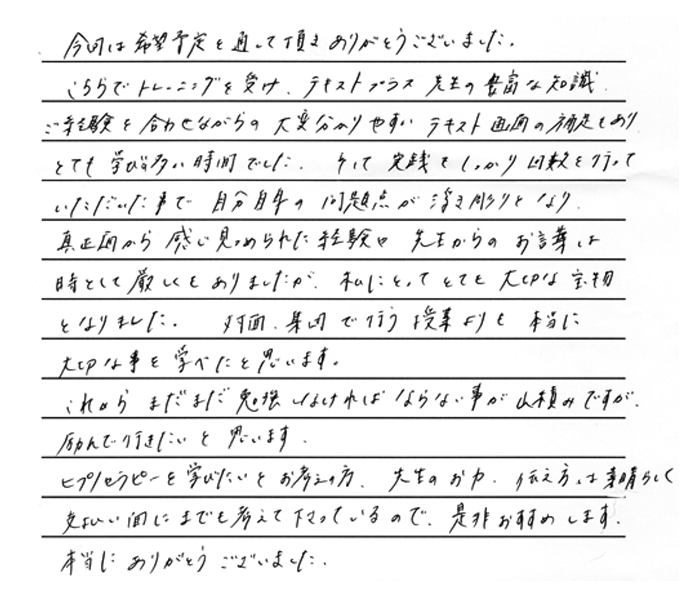 今回は希望予定を通して頂き ありがとうございました。
こちらで トレーニングを受け、テキストプラス 先生の豊富な知識、
ご経験を合わせながらの 大変分かりやすい テキスト画面の補足もあり
とても 学び多い時間でした。そして 実践をしっかり 回数を行って
いただいた事で 自分自身の 問題点が 浮き彫りとなり、
真正面から 感じ見つめられた経験や 先生からの お言葉は
時として厳しくもありましたが、私にとって とても 大切な宝物
となりました。 対面、集団で行う 授業よりも 本当に
大切な事を学べたと思います。
これから まだまだ 勉強しなければ ならない事が山積みですが、
励んで行きたいと思います。
ヒプノセラピーを学びたいとお考えの方、先生のお力、伝え方は素晴らしく
い面にまでも考えて下さっているので、是非おすすめします。
本当に ありがとうございました。